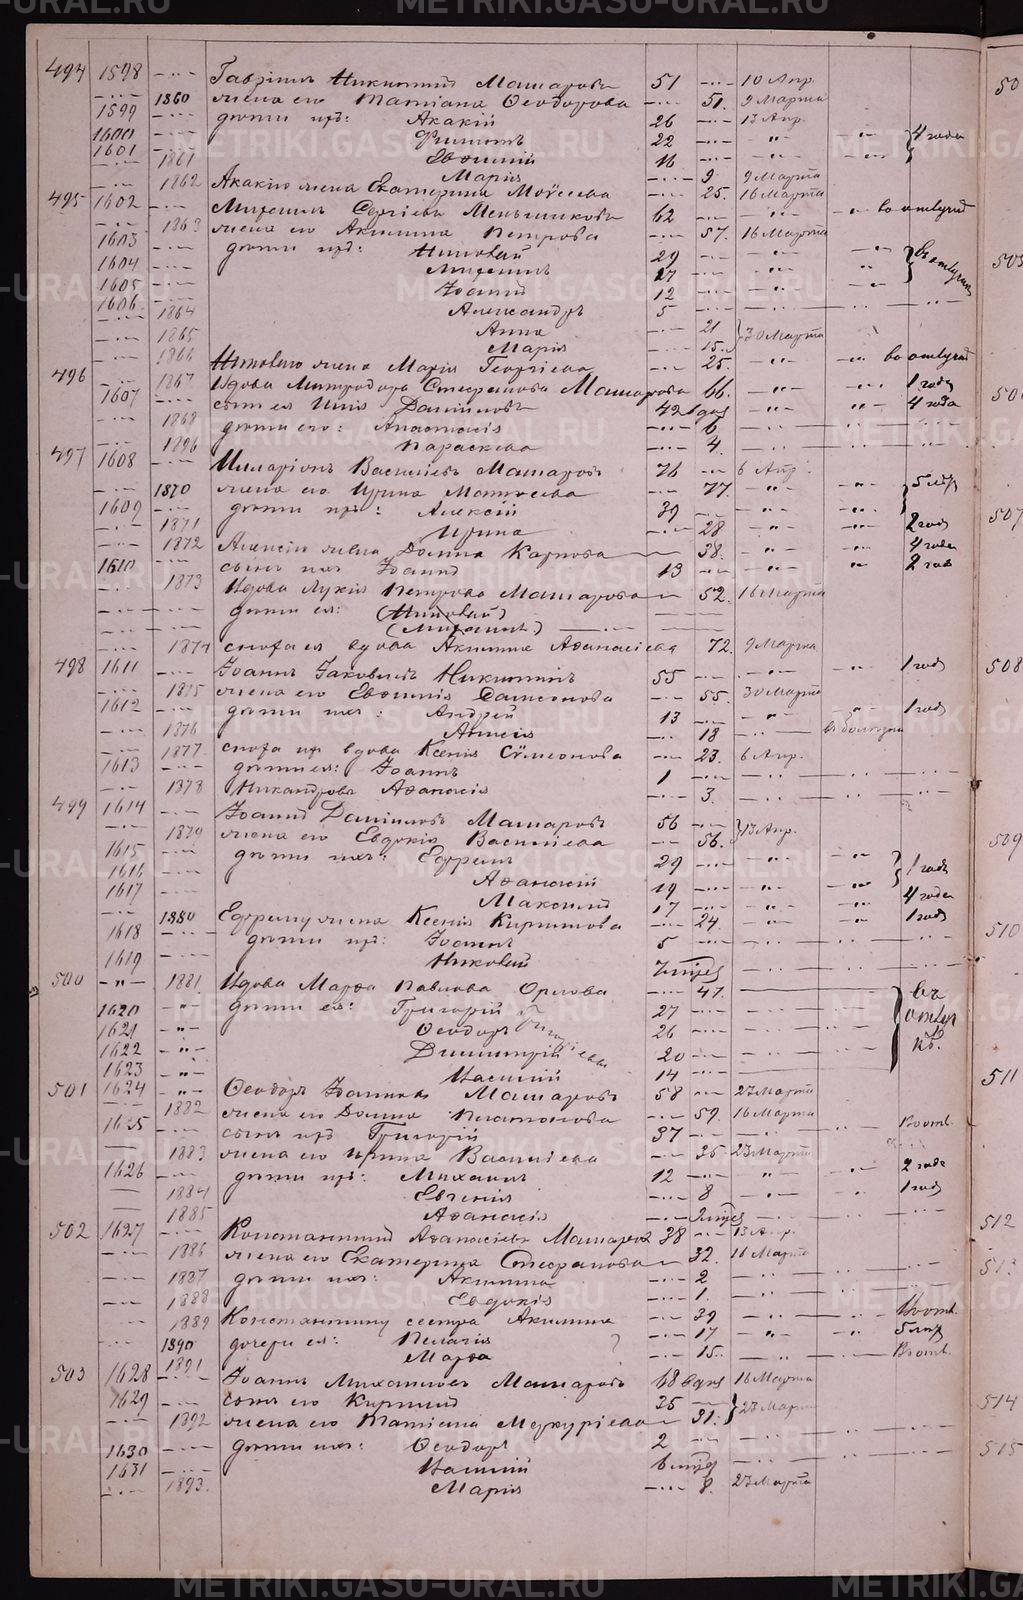 METRIKI.GASO-URAL.RU
494 1598 Гавріилъ Никитинъ Машаровъ 51 10 Апр.
1860 жена его Татіана Ѳеодорова 51. 9 Марта
1599 дѣти ихъ: Акакій 26 13 Апр.
1600 Филиппъ 22 4 года
1601 Евѳимій 16
1861 Марія 9 9 Марта
1862 Акакію жена Екатерина Моѵсеева 25. 16 Марта
495 1602 Сергіевъ Меньшиковъ 62 во отлуч
1863 жена его Акилина Петрова 57. 16 Марта
1603 дѣти ихъ: Николай 29 въ отлучк
1604 17
1605 Іоаннъ 12
1606 Александръ 5
1864 Анна 21 30 Марта
1865 Марія 15.
1866 Николаю жена Марія Георгіева 25. во отлуч
496 1867 Вдова Митродора Стефанова Машарова 66. 1 годъ
1607 сынъ ея Илія Даніиловъ 42 вдов 4 года
1868 дѣти его: Анастасія 6
1896 Параскева 4.
497 1608 Иларіонъ Василіевъ Машаровъ 76 6 Апр.
1870 жена его Ирина Матѳеева 77. 5 лѣтъ
1609 дѣти ихъ: Алексій 39
1871 Ирина 28 2 год
1872 Алексію жена Домна Карпова 38. 4 года
1610 сынъ ихъ Іоаннъ 13 2 год
1873 Вдова Лукія Петрова Машарова 52. 16 Марта
дѣти ея: (Николай)
1874 сноха ея вдова Акилина Аѳанасіева 72. 9 Марта
498 1611 Іоаннъ Іаковлевъ Никитинъ 55 1 годъ
1875 жена его Евѳимія Самсонова 55. 30 Марта
1612 дѣти ихъ: Андрей 13 1 годъ
1876 Анисія 18 въ болѣзни
1877. сноха ихъ вдова Ксенія Сѵмеонова 23. 6 Апр.
1613 дѣти ея: Іоаннъ 1
1878 Никандрова Аѳанасія 3.
499 1614 Іоаннъ Даніиловъ Машаровъ 56 13 Апр.
1879 жена его Евдокія Василіева 56.
1615 дѣти ихъ: Ефремъ 29 1 годъ
1616 Аѳанасій 19
1617 Максимъ 17 4 года
1880 Ефрему жена Ксенія Кириллова 24. 1 годъ
1618 дѣти ихъ: Іоаннъ 5
1619 Николай 7 мѣс
500 1881. Вдова Марѳа Павлова Орлова 47. въ отлучкѣ.
1620 дѣти ея: Григорій 27
1621 Ѳеодоръ 26
1622 Димитрій 20
1623 Василій 14
501 1624 Ѳеодоръ Іоанновъ Машаровъ 58 23 Марта
1882 жена его Домна Платонова 59. 16 Марта
1625 сынъ ихъ Григорій 37 Воотл.
1883 жена его Ирина Василіева 35 23 Марта
1626 дѣти ихъ: Михаилъ 12 2 года
1884 Евгенія 8 1 годъ
1885 Аѳанасія 2 мѣс
502 1627 Константинъ Аѳанасіевъ Машаровъ 38 13 Апр.
1886 жена его Екатерина Стефанова 32. 16 Марта
1887 дѣти ихъ: Акилина 2
1888 Евдокія 1.
1889 Константину сестра Акилина 39 Воотл.
1890 дочери ея: Пелагія 17 5 лѣтъ
1891 Марѳа 15. Воотл.
503 1628 Іоаннъ Михаиловъ Машаровъ 68 вдов 16 Марта
1629 сынъ его Кириллъ 35 23 Марта
1892 жена его Меркуріева 31.
1630 дѣти ихъ: Ѳеодоръ 2
1631 Василій 6 мѣс
1893. Марія 8. 23 Марта
505
507
508
509
510
511
512
513
514
515